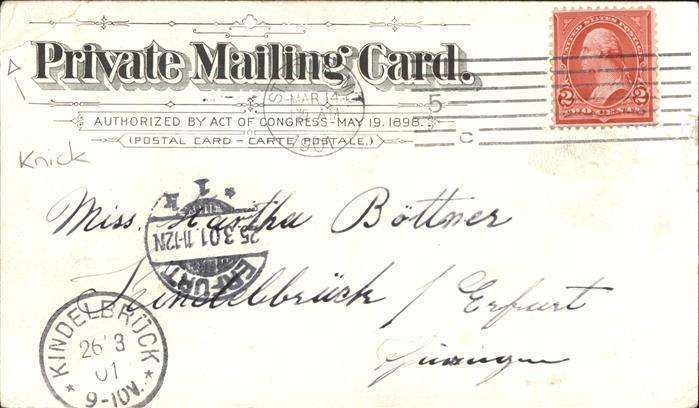 Private Mailing Card.
AUTHORIZED BY ACT OF CONGRESS MAY 19, 1898.
(POSTAL CARD - CARTE POSTALE.)
MAR 14
1901
5
C
UNITED STATES POSTAGE
2 2
TWO CENTS
Knick
Miss Martha Böttner
Kindelbrück / Erfurt
Thüringen
ERFURT
25.3.01.11-12N
* 1 *
KINDELBRÜCK
26 3
01
* 9-10V. *